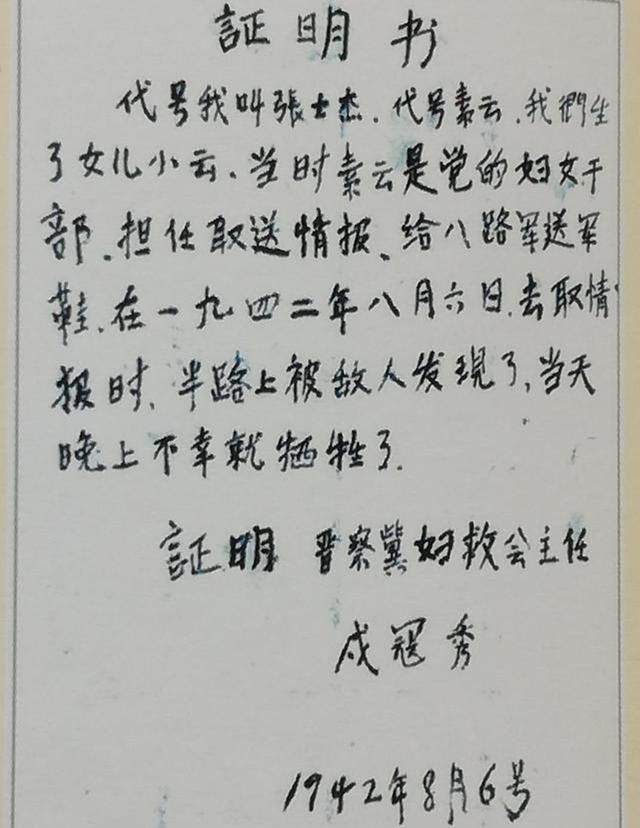 証明书
代号我叫張士杰.代号素云.我們生
了女儿小云、当时素云是党的妇女干
部、担任取送情报、给八路军送军
鞋.在一九四二年八月六日.去取情
报时、半路上被敌人发現了,当天
晚上不幸就牺牲了.
証明 晋察冀妇救会主任
戎冠秀
1942年8月6号